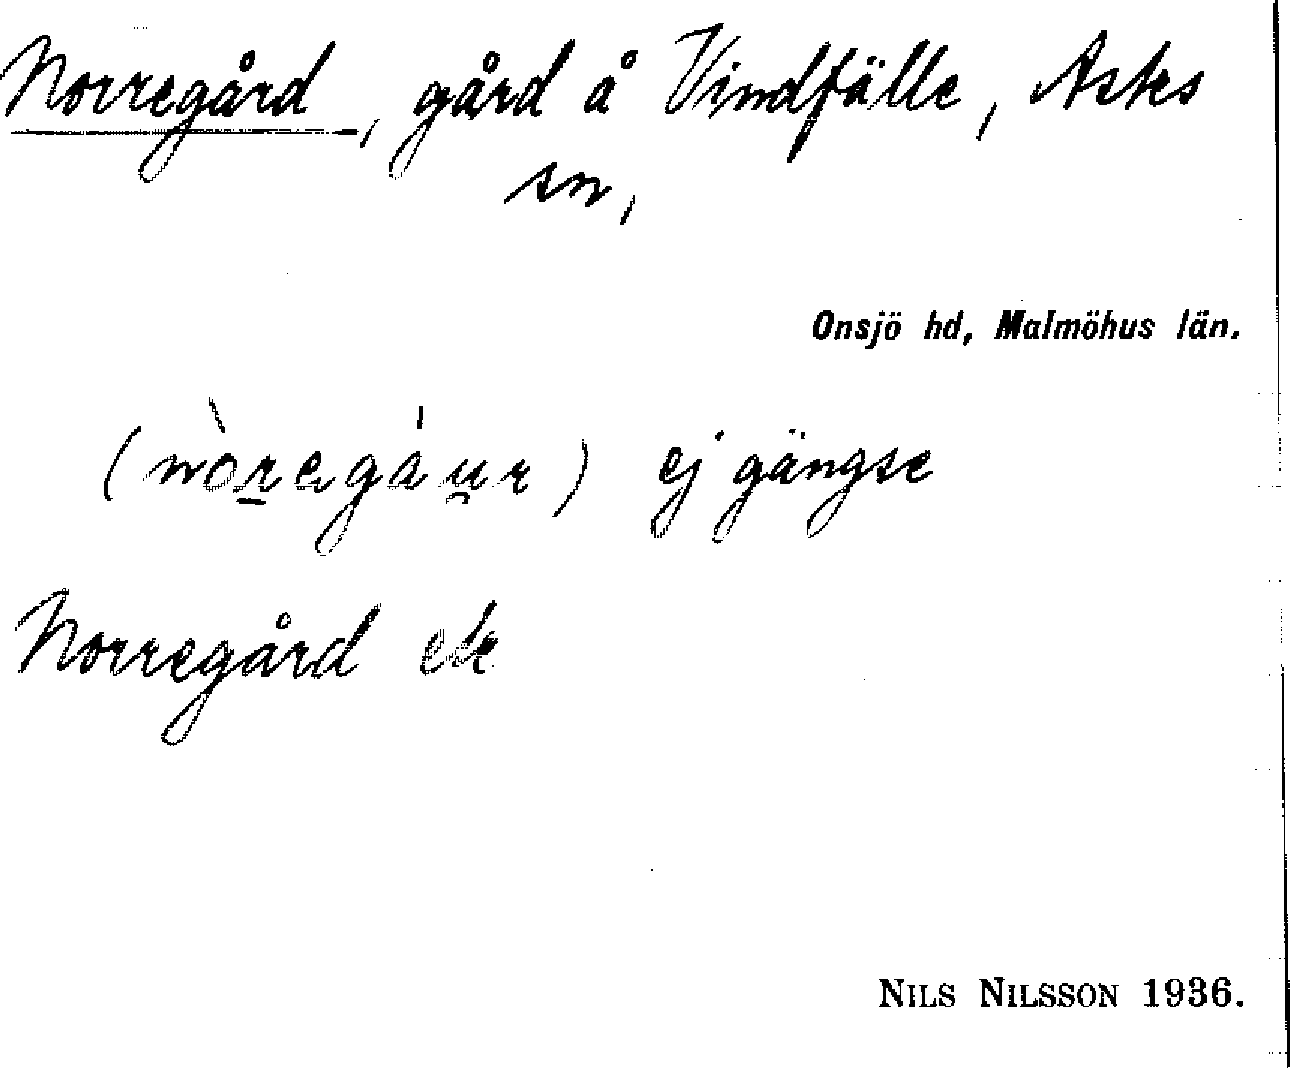 Norregård, gård å Vindfälle, Asks
sn,
Onsjö hd, Malmöhus län.
(nòregáur) ej gängse
Norregård ek
NILS NILSSON 1936.